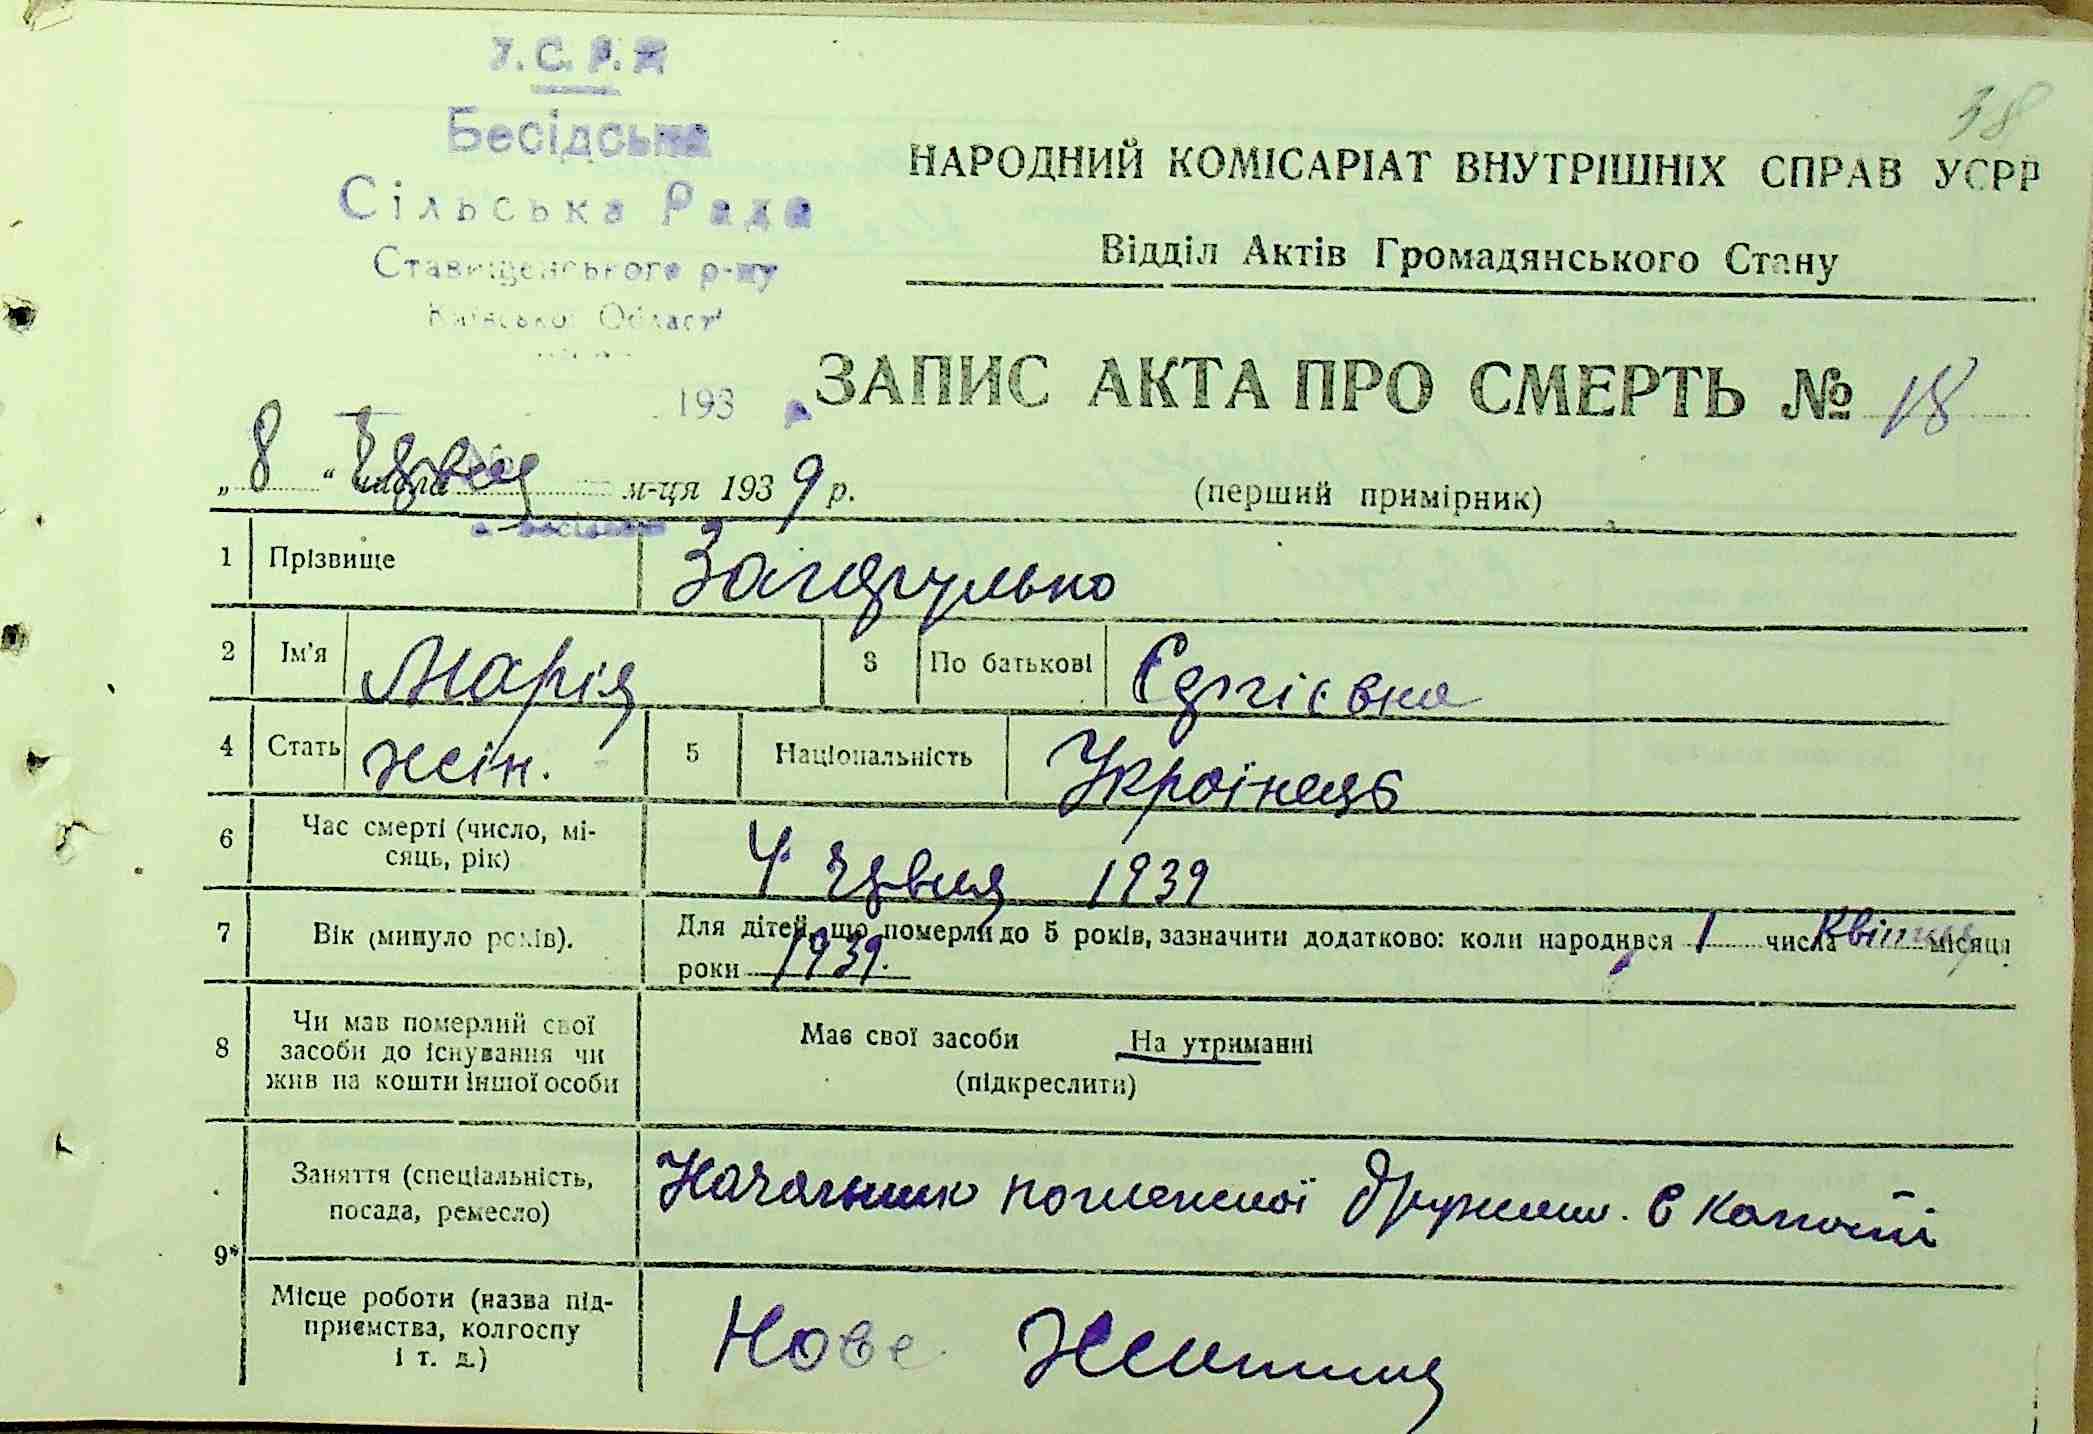 У.С.Р.Р.
38
Бесідська
НАРОДНИЙ КОМІСАРІАТ ВНУТРІШНІХ СПРАВ УСРР
Сільська Рада
Відділ Актів Громадянського Стану
Ставищенського р-ну
Київської Області
193
ЗАПИС АКТА ПРО СМЕРТЬ № 18
„8“ числа м-ця 1939 р.
(перший примірник)
1 Прізвище Загородулько
2 Ім'я Марія 3 По батькові
4 Стать жін. 5 Національність Українець
6 Час смерті (число, мі-
сяць, рік) 4 червня 1939
7 Вік (минуло років). Для дітей, що померли до 5 років, зазначити додатково: коли народився 1 числа Квітня місяця
роки 1939.
8 Чи мав померлий свої
засоби до існування чи
жив на кошти іншої особи
Має свої засоби На утриманні
(підкреслити)
9* Заняття (спеціальність,
посада, ремесло)
Начальник пожежної дружини в
Місце роботи (назва під-
приємства, колгоспу
і т. д.)
Нове Життя